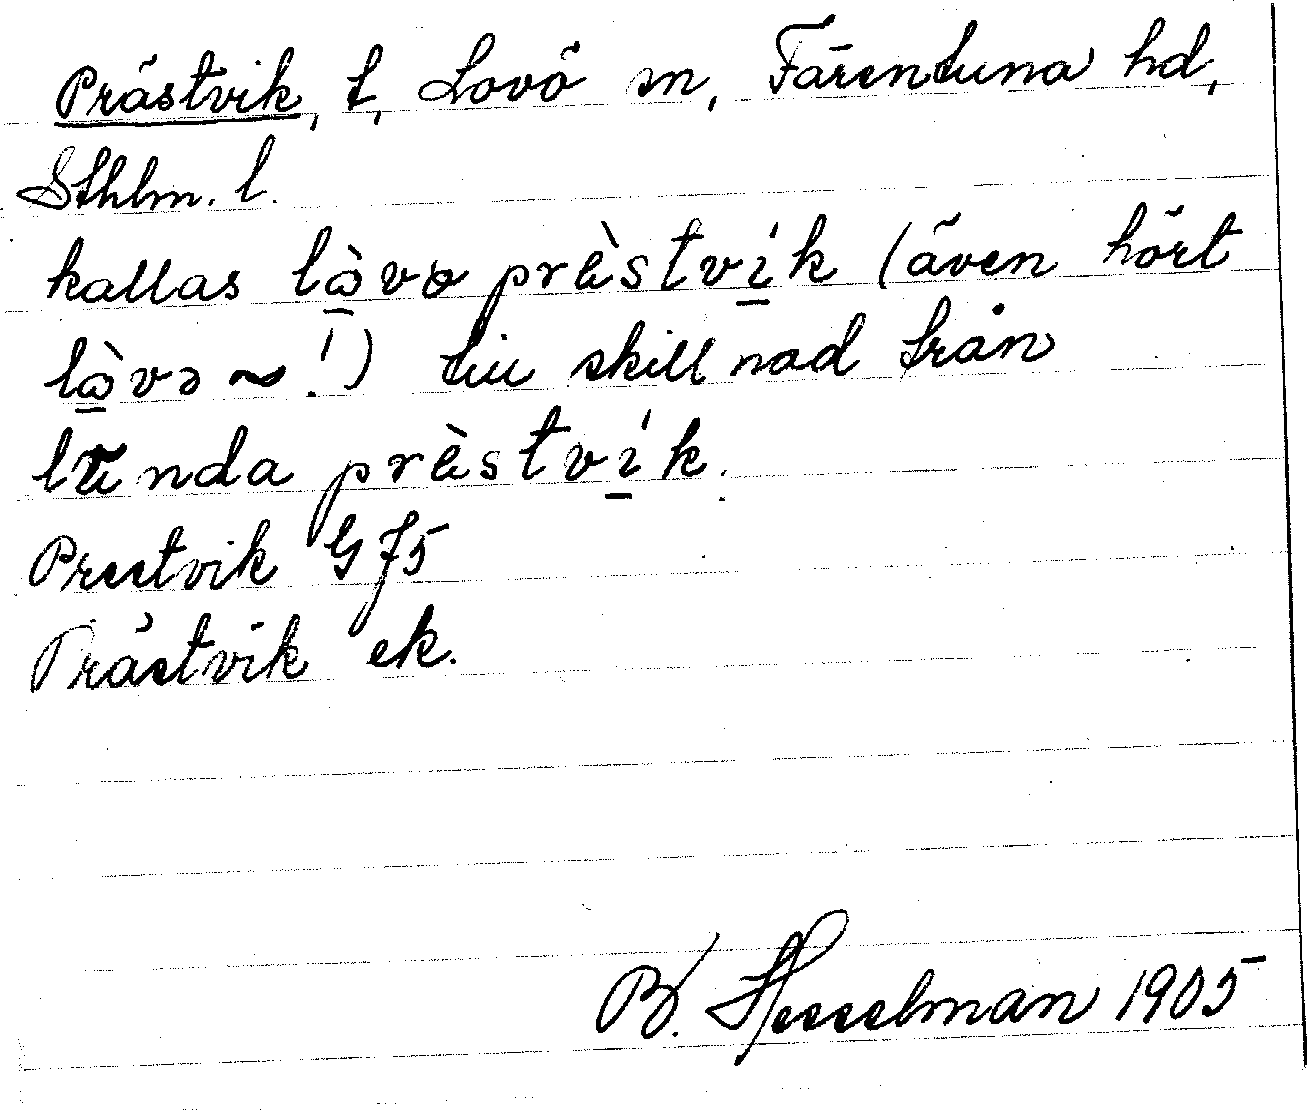 Prästvik, t, Lovö sn, Färentuna hd,
Sthlm. l.
kallas lò̱vo prɛ̀ství̱k (även hört
lò̱və ~!) till skillnad från
lunda prɛ̀ství̱k.
Prestvik GJ5
Prästvik ek.
B. Hesselman 1905